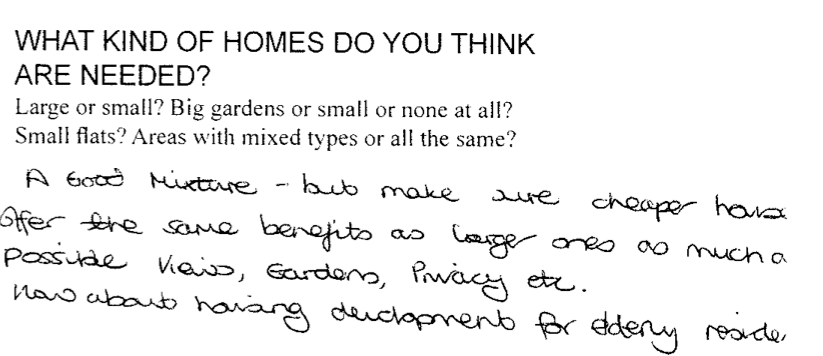 WHAT KIND OF HOMES DO YOU THINK
ARE NEEDED?
Large or small? Big gardens or small or none at all?
Small flats? Areas with mixed types or all the same?
A Good Mixture - but make sure cheaper
Offer the same benefits as larger ones as much a
possible Views, Gardens, Privacy etc.
How about housing development for elderly